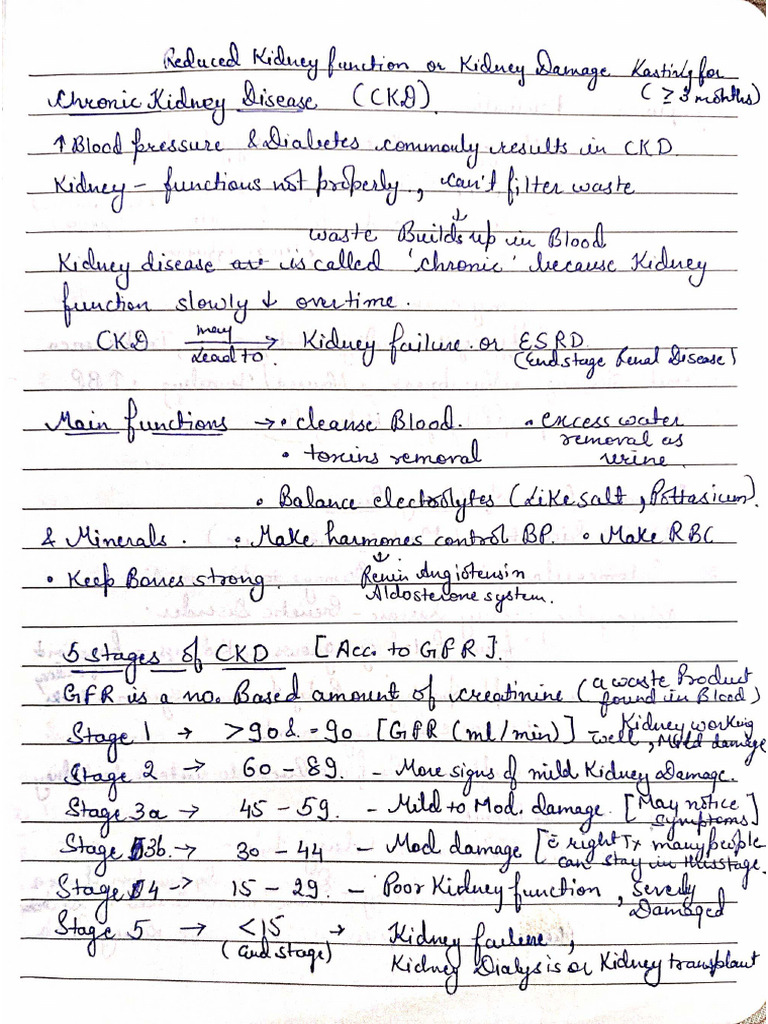 Reduced Kidney function or Kidney Damage Lasting for
Chronic Kidney Disease (CKD). (≥ 3 months)
↑ Blood pressure & Diabetes commonly results in CKD.
Kidney – functions not properly, can't filter waste
↓
waste Builds up in Blood
Kidney disease is called 'chronic' because Kidney
function slowly ↓ overtime.
CKD may Lead to → Kidney failure or ESRD
(End stage Renal Disease)
Main functions → • cleanse Blood. • excess water
removal as
• toxins removal urine.
• Balance electrolytes (Like salt, Pottasium).
& Minerals. • Make harmones control BP. • Make RBC
↓
• Keep Bones strong. Renin Angiotensin
Aldosterone system.
5 stages of CKD [Acc. to GFR].
GFR is a no. Based amount of creatinine (a waste Product
found in Blood)
Stage 1 → >90 & =90 [GFR (ml/min)] – Kidney working
well, Mild damage
Stage 2 → 60 – 89. – More signs of mild Kidney Damage.
Stage 3a → 45 – 59. – Mild to Mod. damage. [May notice
symptoms]
Stage 3b. → 30 – 44 – Mod damage [c̄ right Tx many people
can stay in this stage.
Stage 4 → 15 – 29. – Poor Kidney function, severly
Damaged
Stage 5 → <15 → Kidney failure,
(end stage) Kidney Dialysis or Kidney transplant